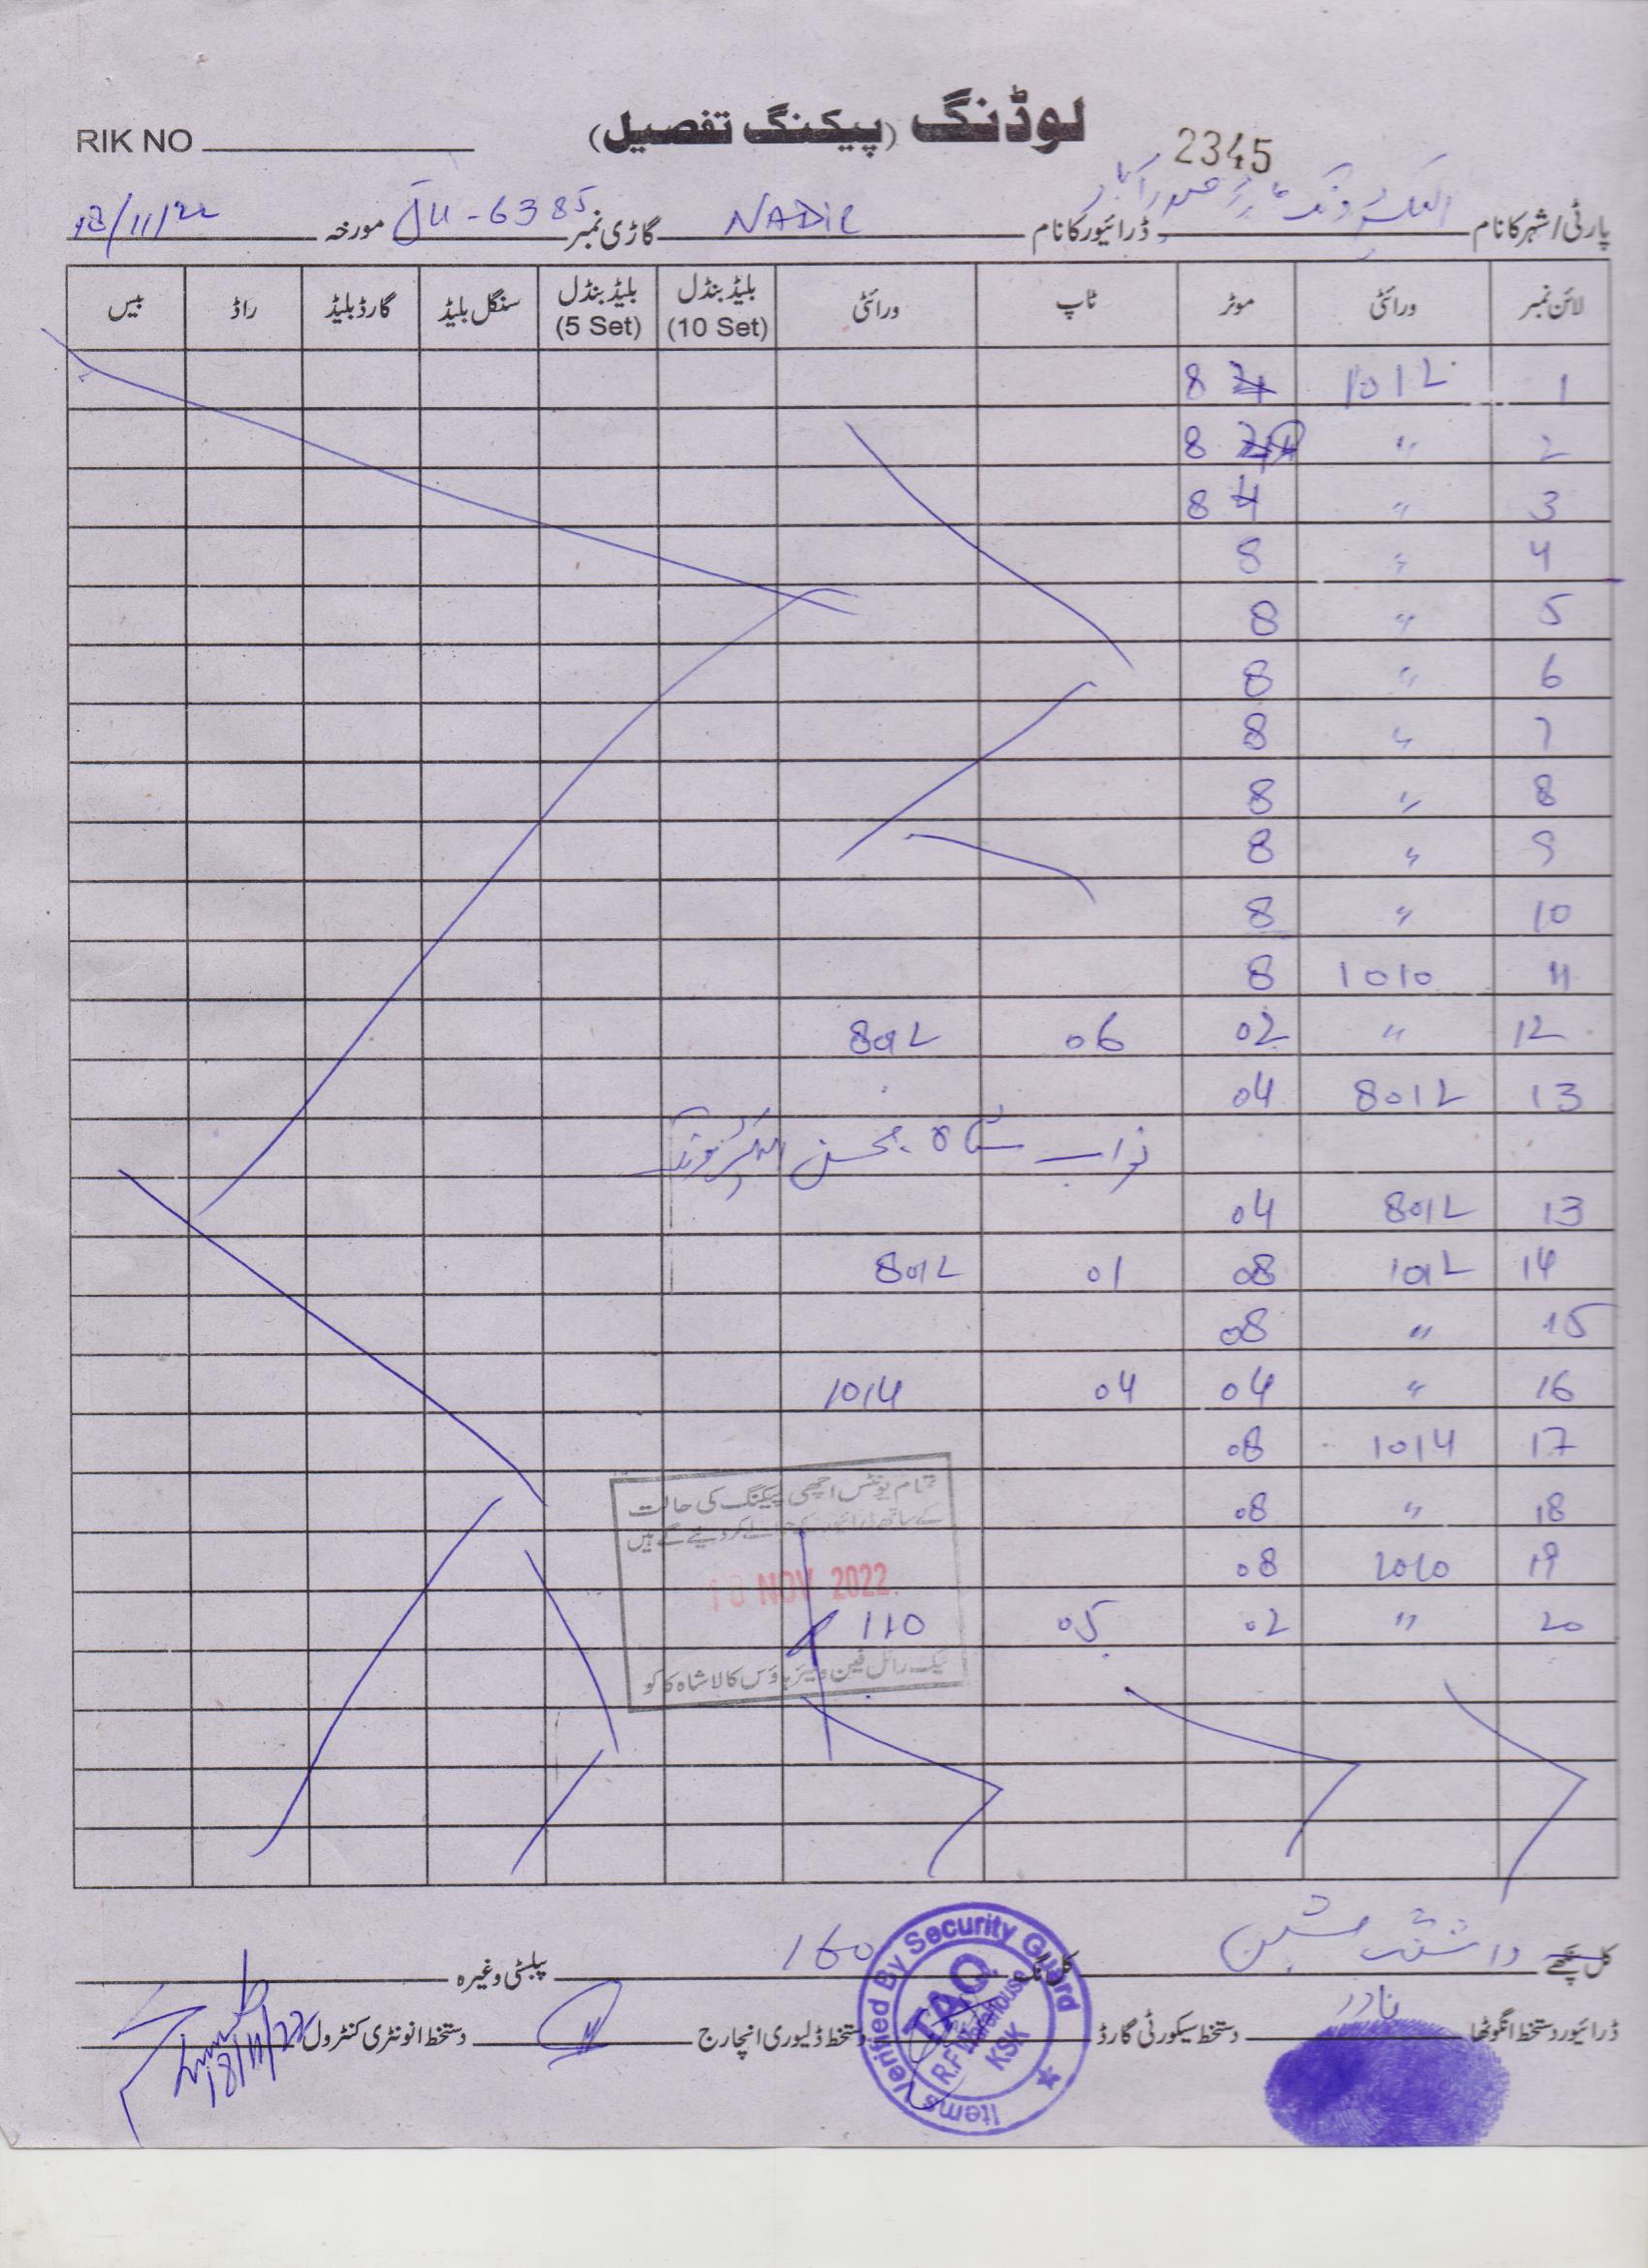 لوڈنگ (پیکنگ تفصیل)
RIK NO
2345
پارٹی/شہر کا نام ڈرائیور کا نام NADIR گاڑی نمبر JU-6385 مورخہ 18/11/22
لائن نمبر ورائٹی موٹر ٹاپ ورائٹی بلیڈ بنڈل (10 Set) بلیڈ بنڈل (5 Set) سنگل بلیڈ گارڈ بلیڈ راڈ بیس
1 101L 8
2 " 8
3 " 8
4 " 8
5 " 8
6 " 8
7 " 8
8 " 8
9 " 8
10 " 8
11 1010 8
12 " 02 06 801L
13 801L 04
نواب شاہ محسن الیکٹرونکس
13 801L 04
14 101L 08 01 801L
15 " 08
16 " 04 04 1014
17 1014 08
18 " 08
19 1010 08
20 " 02 05 110
تمام یونٹس اچھی پیکنگ کی حالت
کے ساتھ ڈرائیور کے حوالے کر دیئے گئے ہیں
18 NOV 2022
رائل فین ویئر ہاؤس کالا شاہ کاکو
کل پنکھے واشنگ مشین کل نگ 160 پبلسٹی وغیرہ
ڈرائیور دستخط انگوٹھا نادر دستخط سیکورٹی گارڈ دستخط ڈلیوری انچارج دستخط انونٹری کنٹرول 18/11/22
Items Verified By Security Guard
R.F Warehouse
KSK